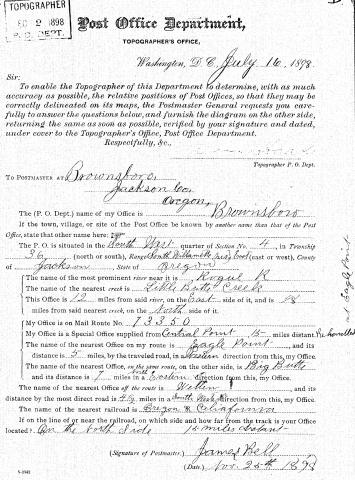 TOPOGRAPHER
1898
P. O. DEPT.
Post Office Department,
TOPOGRAPHER'S OFFICE,
Washington, D. C., July 16, 1898.
Sir:
To enable the Topographer of this Department to determine, with as much
accuracy as possible, the relative positions of Post Offices, so that they may be
correctly delineated on its maps, the Postmaster General requests you care-
fully to answer the questions below, and furnish the diagram on the other side,
returning the same as soon as possible, verified by your signature and dated,
under cover to the Topographer's Office, Post Office Department.
Respectfully, &c.,
Topographer P. O. Dept.
TO POSTMASTER AT Brownsboro,
Jackson Co.
Oregon,
The (P. O. Dept.) name of my Office is Brownsboro
If the town, village, or site of the Post Office be known by another name than that of the Post
Office, state that other name here:
The P. O. is situated in the South West quarter of Section No. 4, in Township
36 (north or south), Range (east or west), County
of Jackson, State of Oregon
The name of the most prominent river near it is Rogue R
The name of the nearest creek is Little Butte Creek
This Office is 12 miles from said river, on the East side of it, and 18
miles from said nearest creek, on the North side of it.
My Office is on Mail Route No. 73350
My Office is a Special Office supplied from Central Point 15 miles distant
The name of the nearest Office on my route is Eagle Point, and its
distance is 5 miles, by the traveled road, in direction from this, my Office.
The name of the nearest Office, on the same route, on the other side, is Big Butte
and its distance is miles in a Eastern direction from this, my Office.
The name of the nearest Office off the route is, and its
distance by the most direct road is 4½ miles in a South direction from this, my Office.
The name of the nearest railroad is Oregon & California
If on the line of or near the railroad, on which side and how far from the track is your Office
located? On the North Side 15 miles distant
(Signature of Postmaster.) James Bell
(Date.) Nov. 25th 1898
at Eagle Point